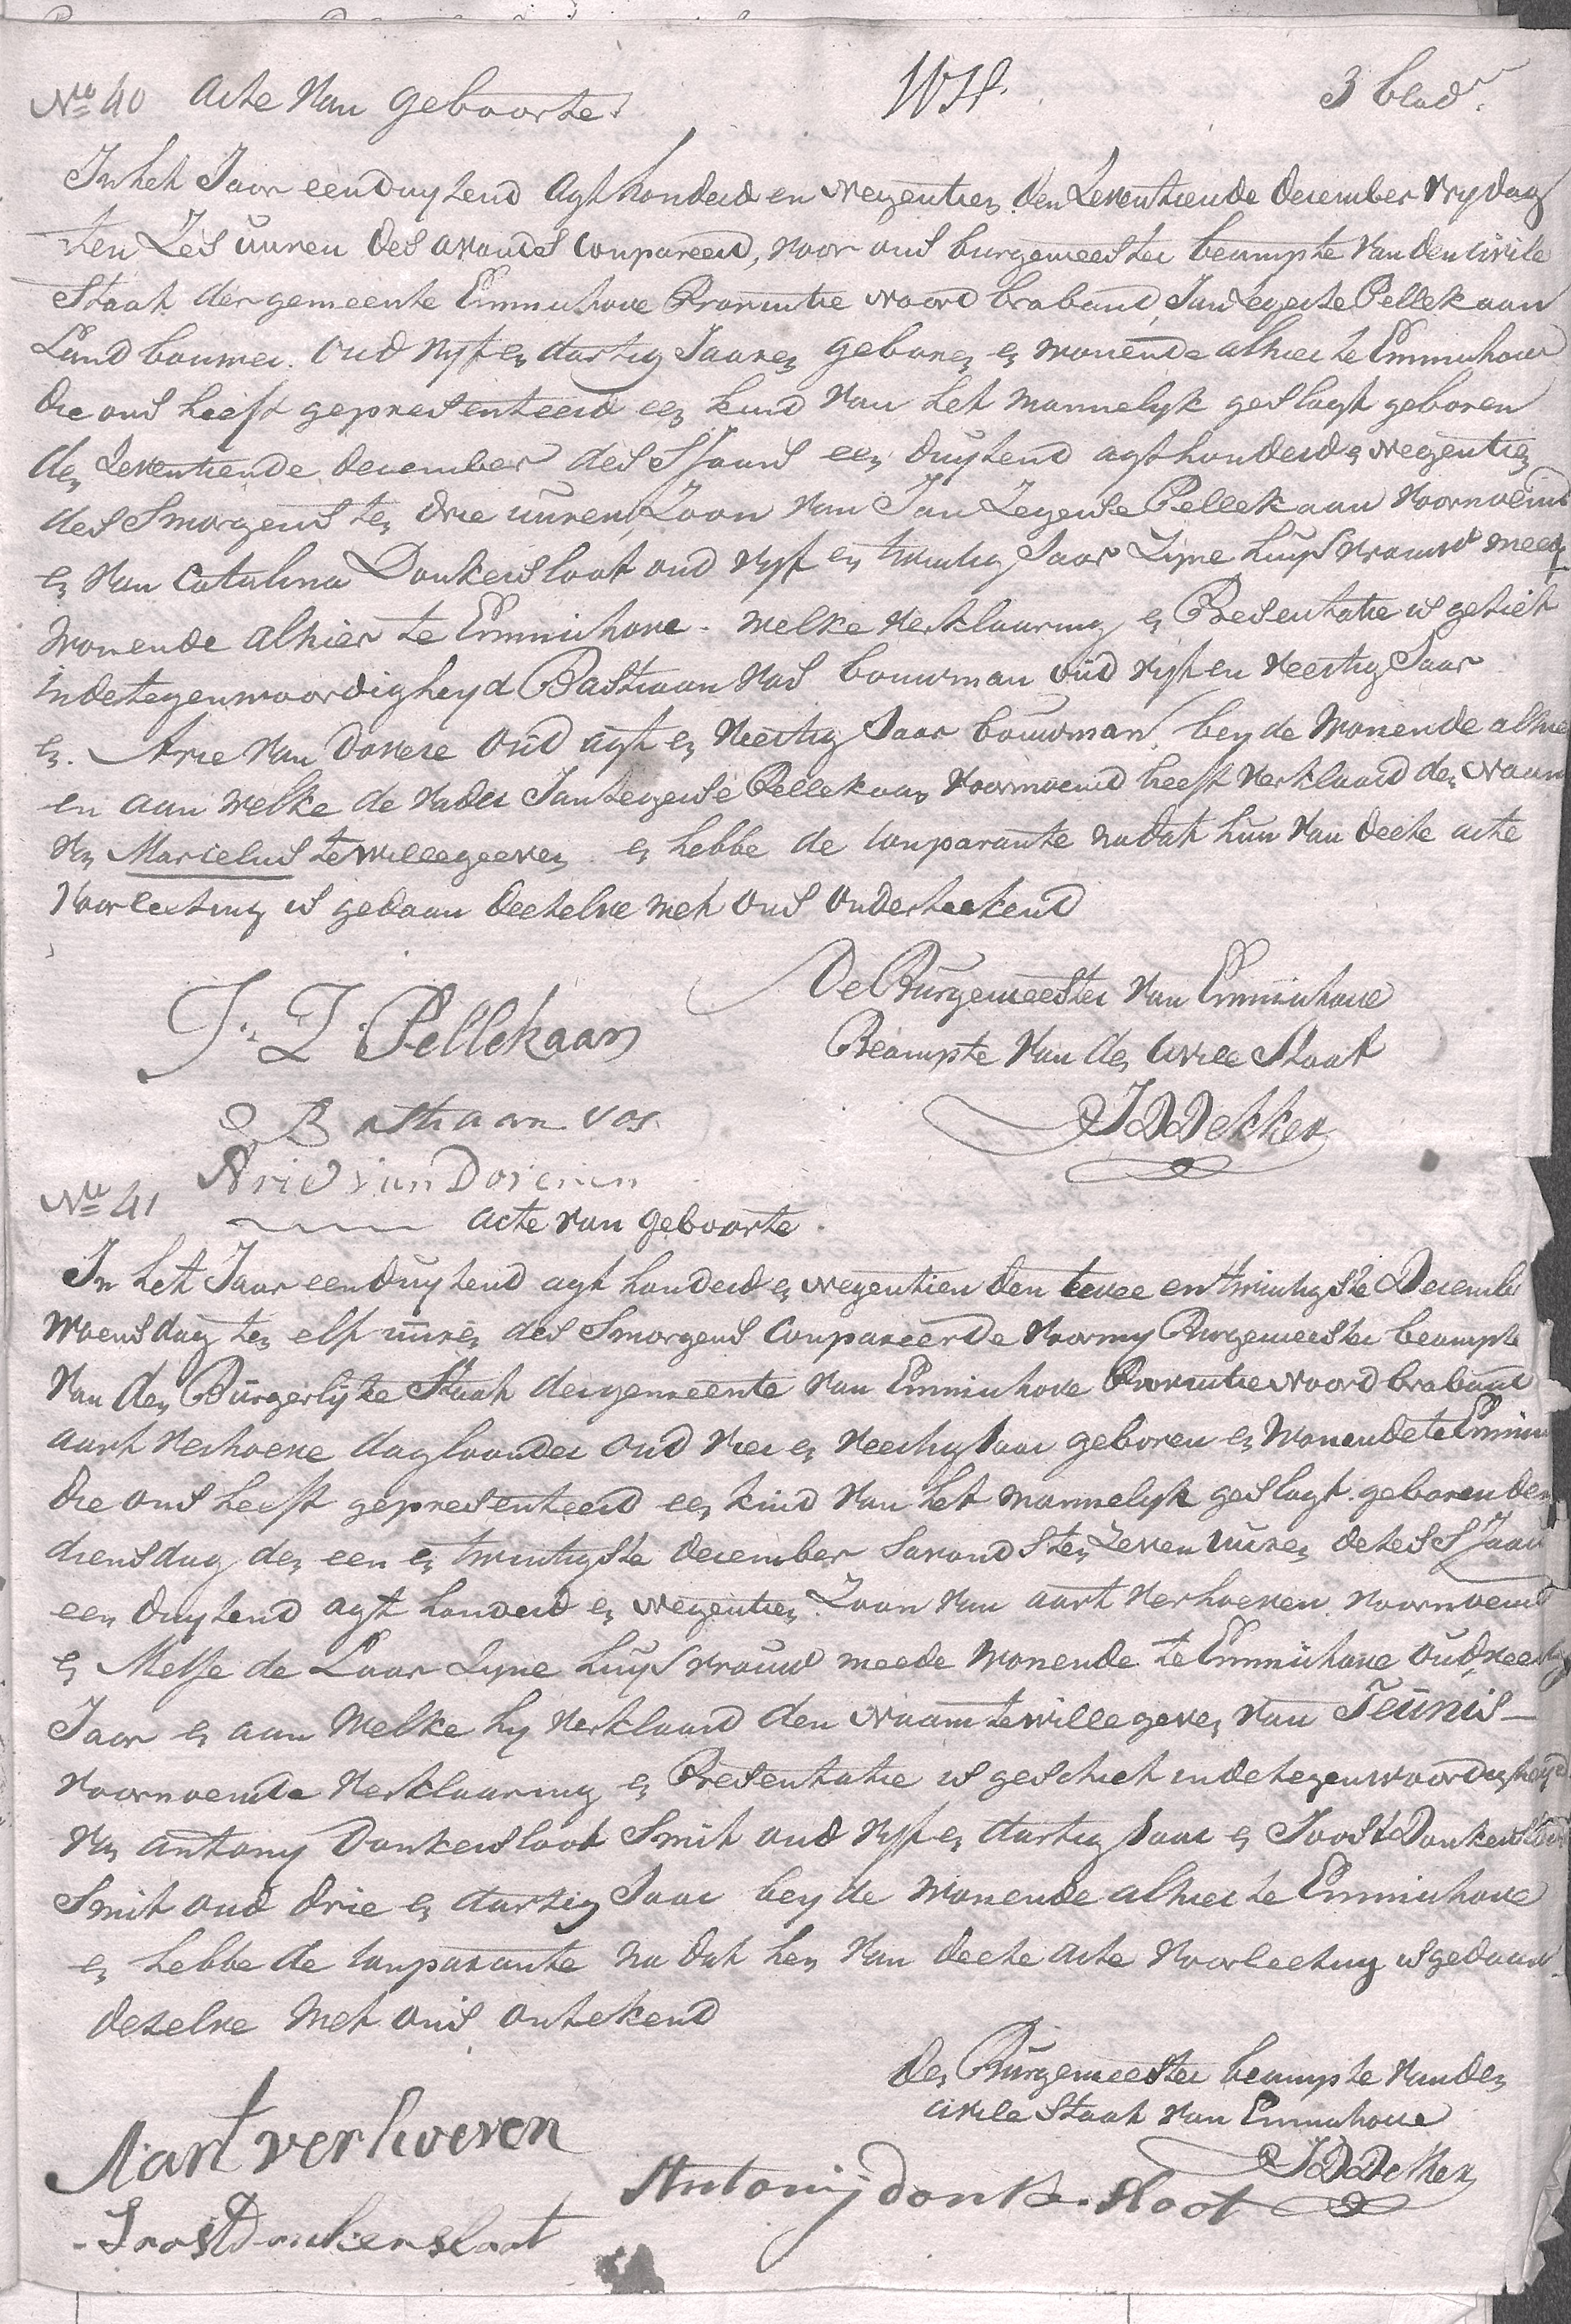 No 40 Acte van geboorte 3 blad
In het Jaar eenduyzend agt honderd en negentien den Zeventiende december vrydag
ten Zes uuren des avonds Conpareerd, voor ons burgemeester beampte van den civile
Staat der gemeente Emminhove Provintie noord braband, Jan Zegerse Pellekaan
Landbouwer oud vyf en dartig Jaaren gebore en wonende alhier te Emminhove
die ons heeft gepresenteerd een kind van het mannelyk geslagt geboren
den Zeventiende december des SJaars een duyzend agt honderd en negentien
des Smorgens ten drie uuren, Zoon van Jan Zegerse Pellekaan voornoemd
en van Catalina Donkersloot oud vyf en twintig Jaar Zyne huysvrouw meede
wonende alhier te Emminhove. welke verklaaring en Presentatie is geschiet
in de tegenwoordigheyd Bastiaan Vos bouwman oud vyf en veertig Jaar
en Arie van Dovere oud agt en veertig Jaar bouwman beyde wonende alhier
en aan welke de vader Jan Zegerse Pellekaan voornoemd heeft verklaard den naam
van Marcelus te wille geeven en hebbe de Conparante nadat hun van deeze acte
voorleezing is gedaan deezelve met ons onderteekend
De Burgemeester van Emminhove
J: Z: Pellekaan
Beampte van de Civile Staat
Bastiaan vos
JDDekker
Arie van Doveren
No 41
acte van geboorte.
In het Jaar eenduyzend agt honderd en negentien den twee en twintigste December
Woensdag ten elf uuren des Smorgens Conpareerde voor my Burgemeester beampte
van den Burgerlyke Staat der gemeente van Emminhove Provintie Noord braband
aart verhoeve daglooner oud vier en veertig Jaar geboren en Wonende te Emmin
die ons heeft gepresenteerd een kind van het mannelyk geslagt geboren den
diensdag den een en twintigste december Savonds ten Zeven uuren dezes SJaars
een duyzend agt honderd en negentien Zoon van aart verhoeven voornoemd
en Melse de Laar Zyne huysvrouw meede wonende te Emminhove oud veertig
Jaar en aan welke hy verklaard den naam te wille geven van Teunis
voornoemde verklaaring en Presentatie is geschiet in de tegenwoordigheyd
van antony Donkersloot Smit oud vyf en dartig Jaar en Joost Donkersloot
Smit oud drie en dartig Jaar beyde wonende alhier te Emminhove
en hebbe de Conparante na dat hen van deeze acte voorleezing is gedaan
dezelve met ons ontekend
den Burgemeester beampte van den
civile Staat van Emminhove
Aart verhoeven
JDDekker
Antonij donkersloot
Joost Donkersloot